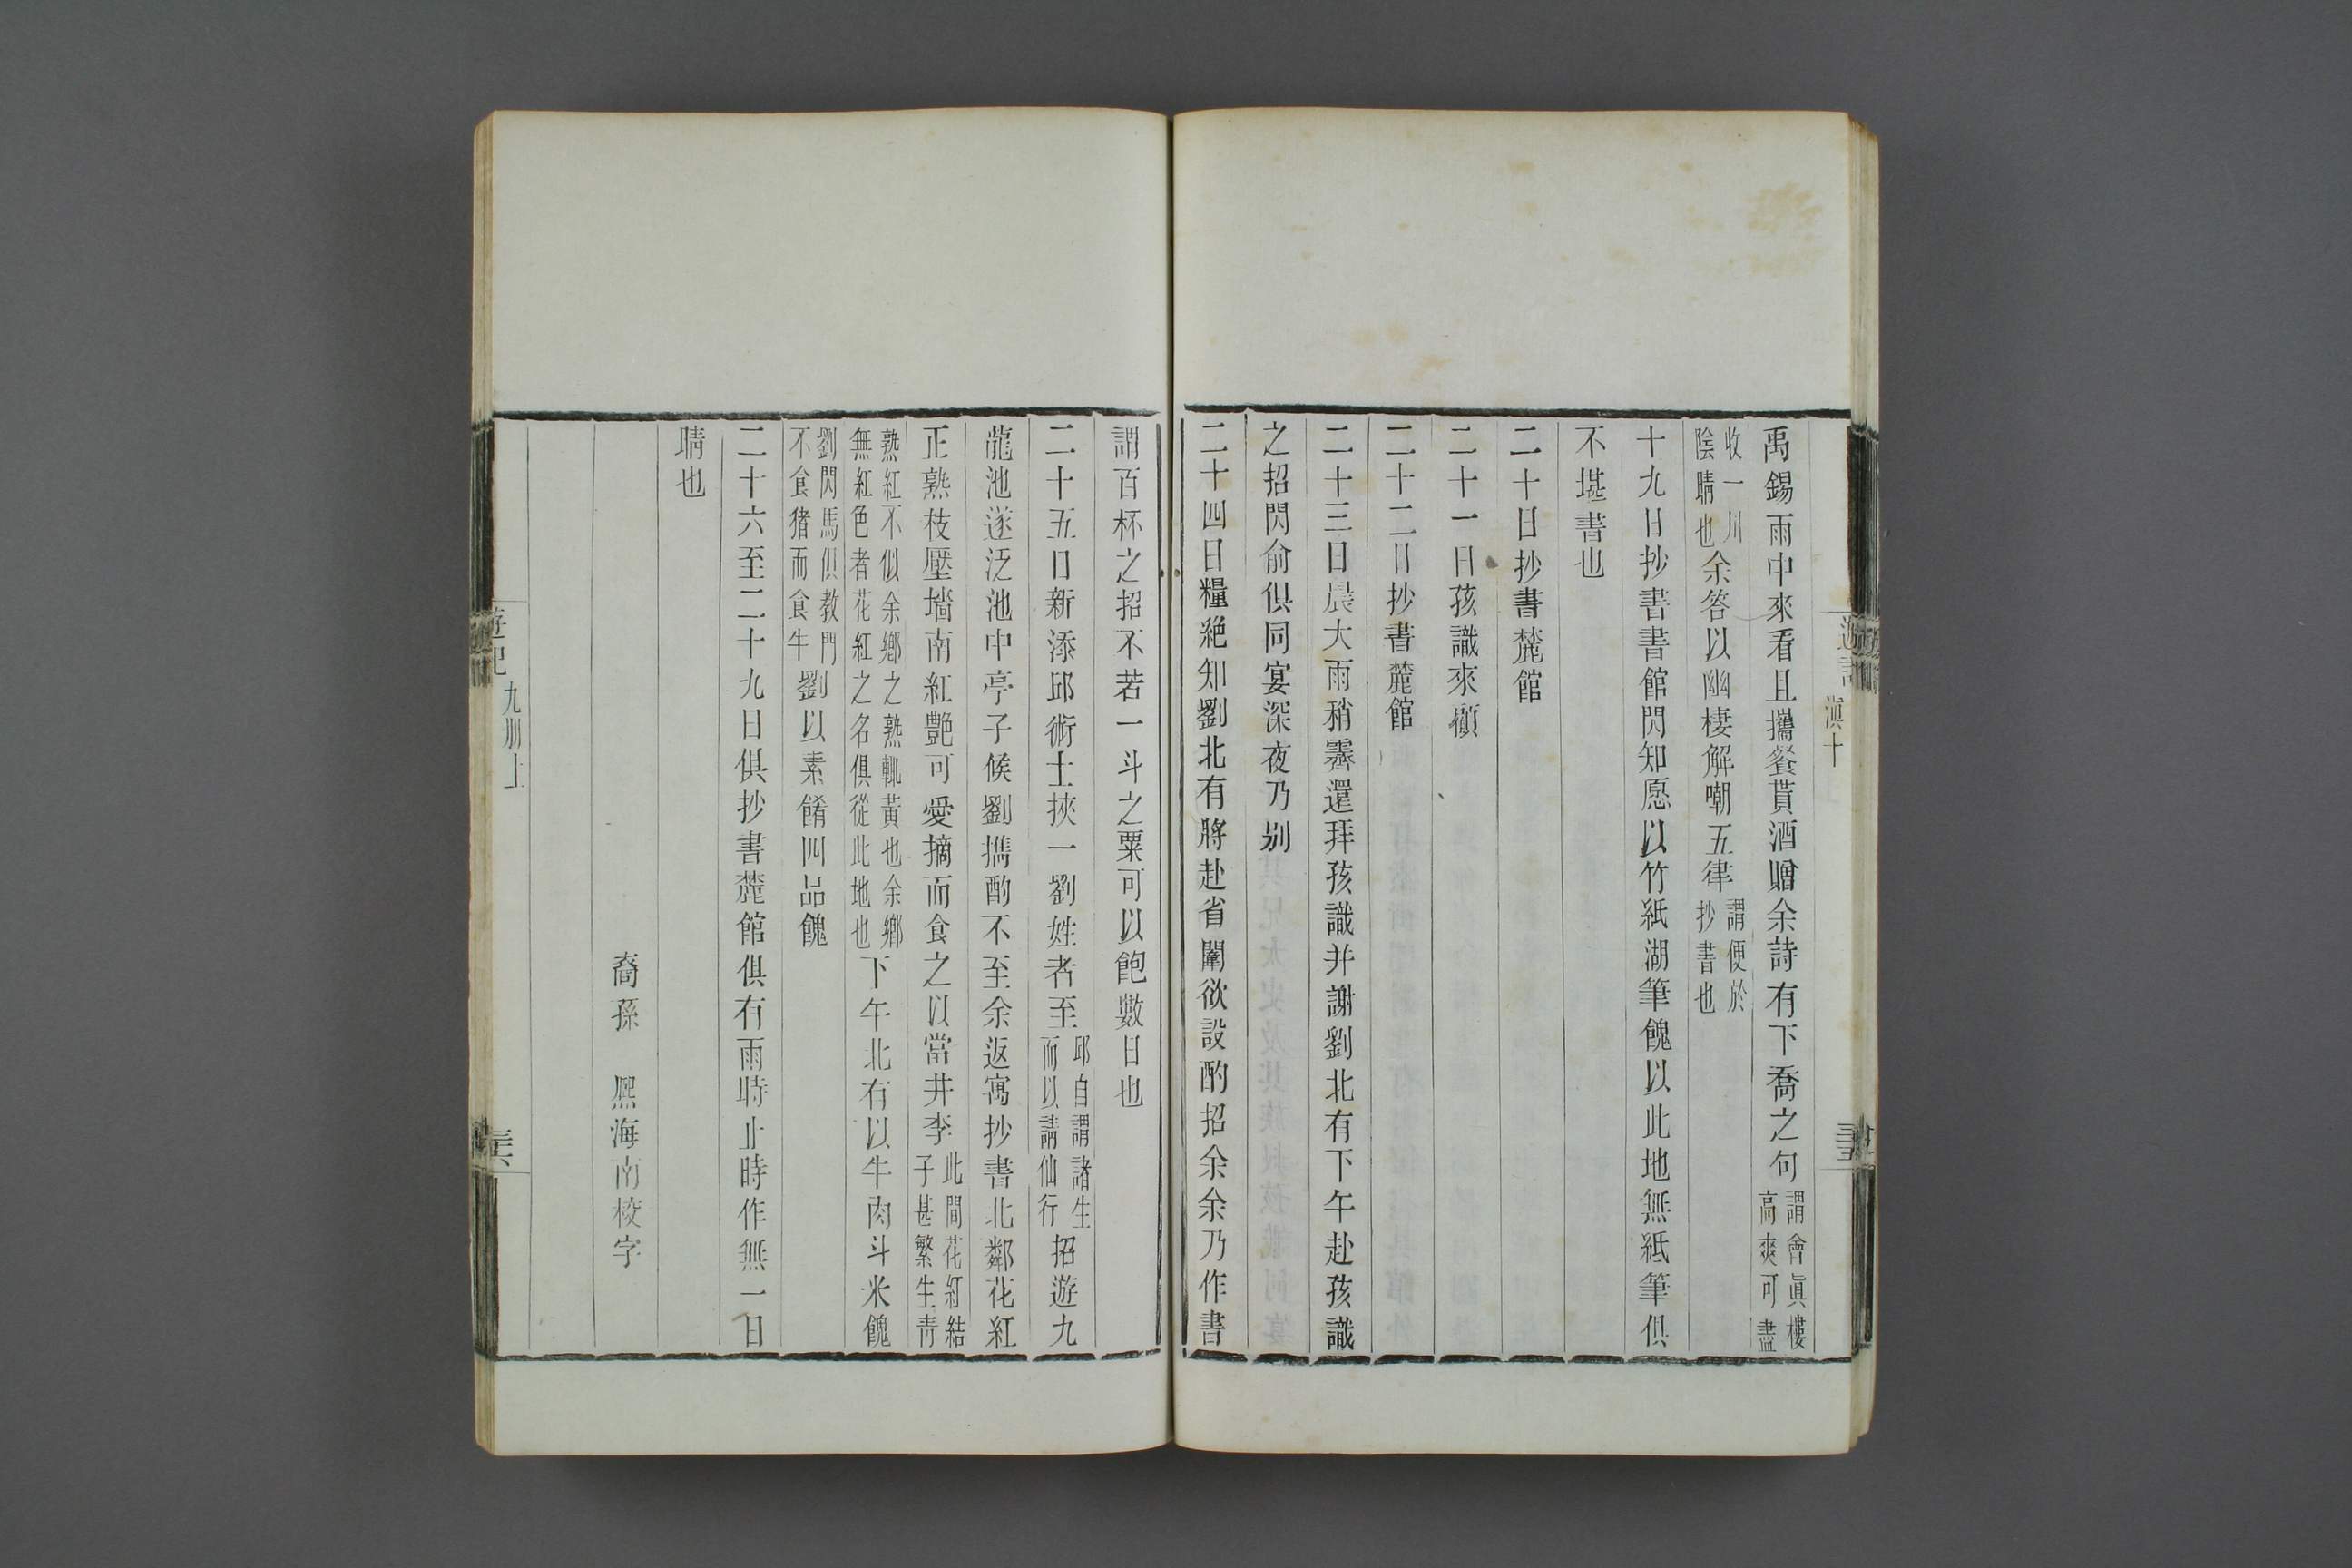 禹錫雨中來看且攜餐貰酒贈余詩有下喬之句謂會眞樓高爽可盡
收一川陰晴也余答以幽棲解嘲五律謂便於抄書也
十九日抄書書館閃知愿以竹紙湖筆餽以此地無紙筆俱
不堪書也
二十日抄書麓館
二十一日孩識來顧
二十二日抄書麓館
二十三日晨大雨稍霽還拜孩識并謝劉北有下午赴孩識
之招閃俞俱同宴深夜乃別
二十四日糧絶知劉北有將赴省闈欲設酌招余余乃作書
謂百杯之招不若一斗之粟可以飽數日也
二十五日新添邱術士挾一劉姓者至邱自謂諸生而以請仙行招遊九
龍池遂泛池中亭子候劉攜酌不至余返寓抄書北鄰花紅
正熟枝壓墻南紅艷可愛摘而食之以當井李此間花紅結子甚繁生青
熟紅不似余鄉之熟輒黃也余鄉無紅色者花紅之名俱從此地也下午北有以牛肉斗米餽
劉閃馬俱教門不食猪而食牛劉以素餚四品餽
二十六至二十九日俱抄書麓館俱有雨時止時作無一日
晴也
裔孫　熙海南校字
遊記
滇十
遊記
九册上